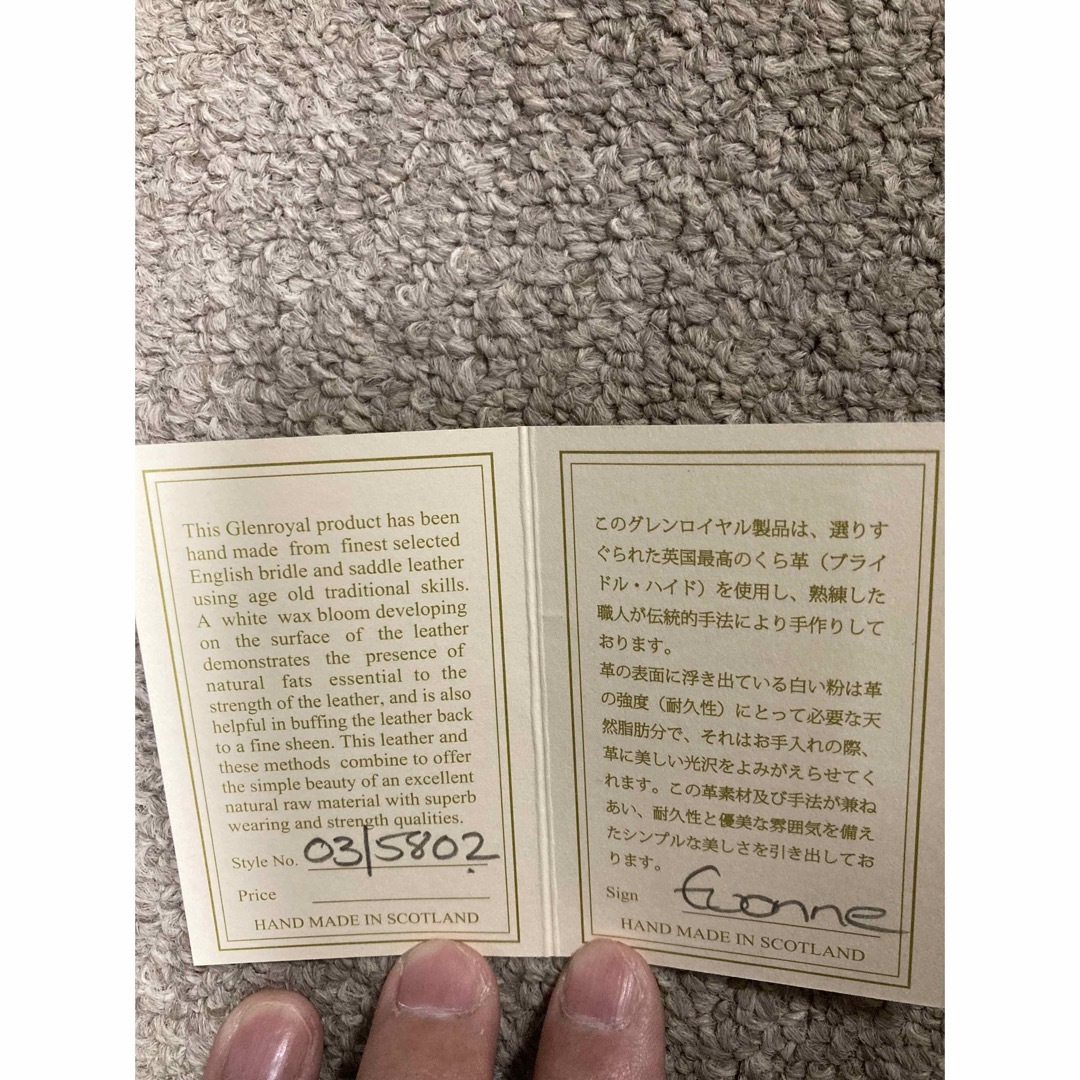 This Glenroyal product has been
hand made from finest selected
English bridle and saddle leather
using age old traditional skills.
A white wax bloom developing
on the surface of the leather
demonstrates the presence of
natural fats essential to the
strength of the leather, and is also
helpful in buffing the leather back
to a fine sheen. This leather and
these methods combine to offer
the simple beauty of an excellent
natural raw material with superb
wearing and strength qualities.
Style No. 03/5802
Price
HAND MADE IN SCOTLAND
このグレンロイヤル製品は、選りす
ぐられた英国最高のくら革（ブライ
ドル・ハイド）を使用し、熟練した
職人が伝統的手法により手作りして
おります。
革の表面に浮き出ている白い粉は革
の強度（耐久性）にとって必要な天
然脂肪分で、それはお手入れの際、
革に美しい光沢をよみがえらせてく
れます。この革素材及び手法が兼ね
あい、耐久性と優美な雰囲気を備え
たシンプルな美しさを引き出してお
ります。
Sign Evonne
HAND MADE IN SCOTLAND